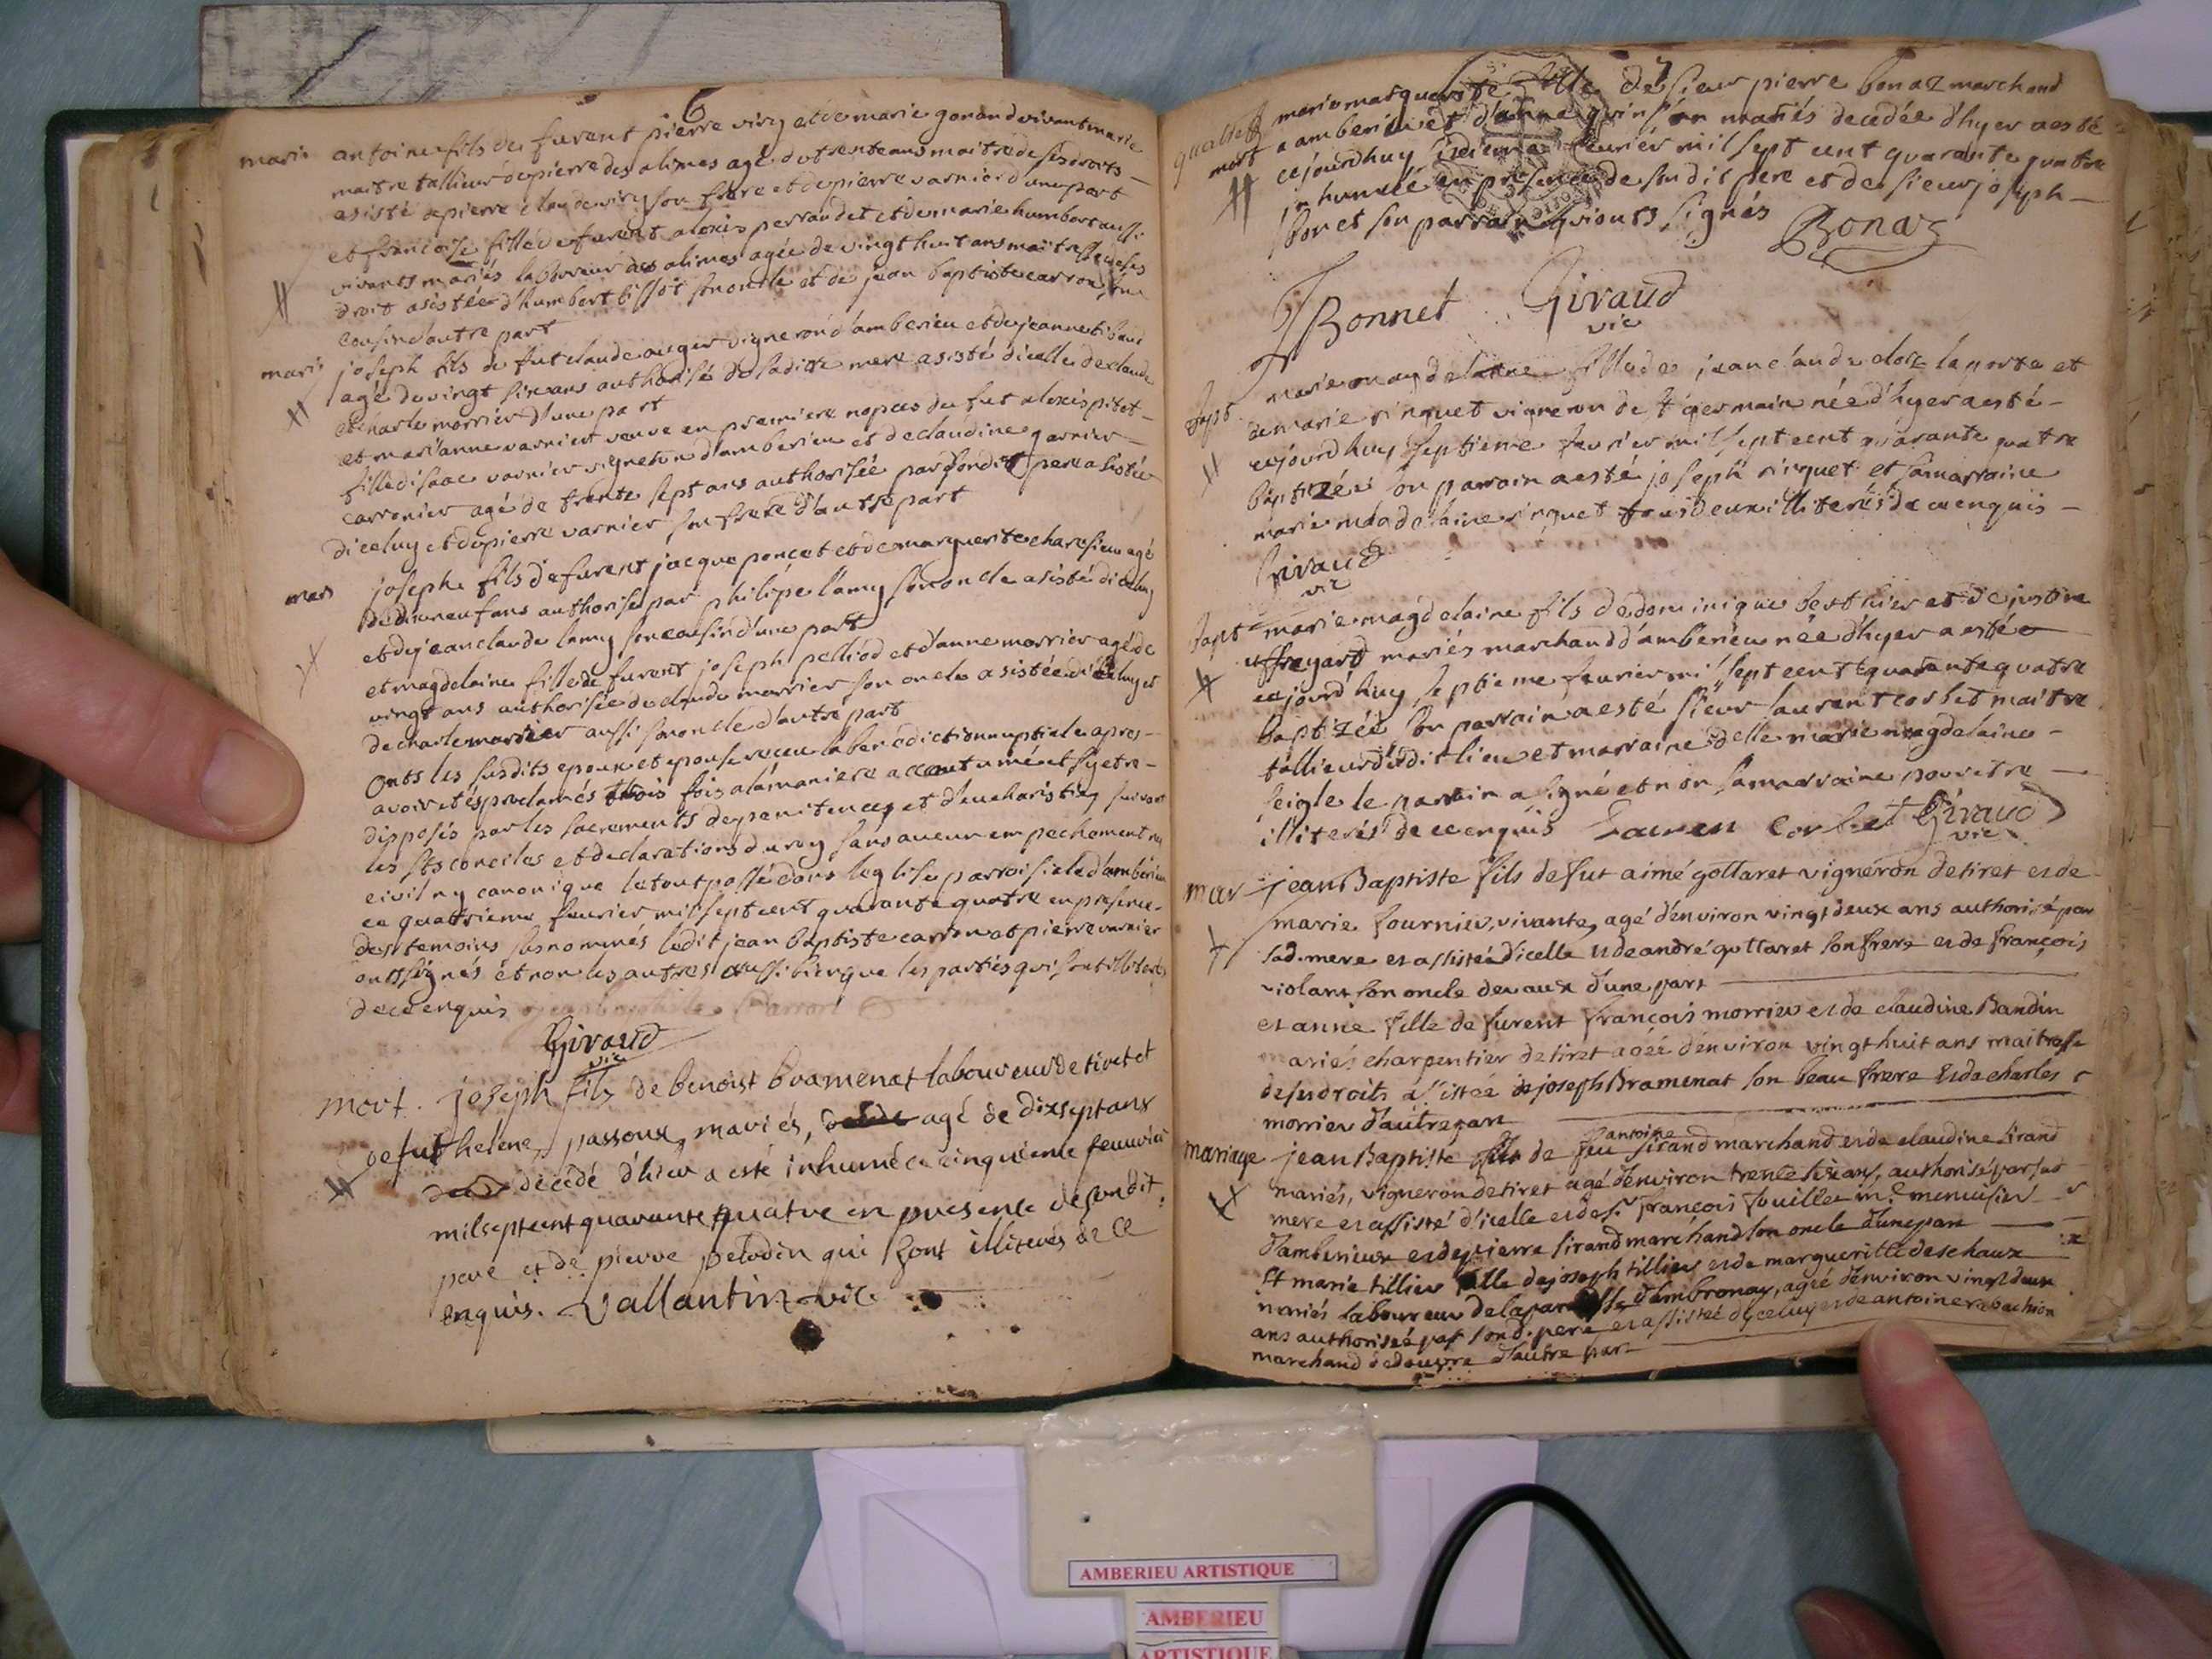 6
mari antoine fils de furent pierre viry et de marie gonand vivant marie
maitre tallieur de pierre des alimes agé de trente ans maitre de ses droits
asisté de pierre claude viry son frere et de pierre varnier d'une part
et francoise fille de furent alexis perraudet et de marie humbert aussi
vivants mariés laboureur des alimes agée de vingt huit ans maitresse de ses
droit asistée d'humbert bissot son oncle et de jean baptiste carron son
cousin d'autre part
mari joseph fils de fut claude auger vigneron d'amberieu et de jeanne tibaud
agé de vingt six ans authorisé de sadite mere asisté d'icelle de claude
et charle morrier d'une part
et marianne varnier veuve en premiere nopces de fut alexis pitet
fille d'isaac varnier vigneron d'amberieu et de claudine garnier
carronier agé de trente sept ans authorisée par sondit pere asistée
diceluy et de pierre varnier son frere d'autre part
mari joseph fils de furent jacque poncet et de marguerite charesieu agé
de dixneuf ans authorisé par philipe lamy son oncle asisté diceluy
et de jean claude lamy son cousin d'une part
et magdelaine fille de furent joseph pelliod et d'anne morrier agé de
vingt ans authorisée de claude morrier son oncle asistée diceluy et
de charle morrier aussi son oncle d'autre part
Onts les susdits epoux et epouse receu la benediction nuptiale apres
avoir etés proclamés trois fois a la maniere accoutumée et s'y etre
disposés par les sacrements de penitences et d'eucharistiey suivant
les sts conciles et declarations du roy sans aucun empechement ny
civil ny canonique le tout passé dans leglise parroisiale d'amberieu
ce quatrieme feurier mil sept cent quarante quatre en presence
des temoins susnommés ledit jean baptiste carron et pierre varnier
onts signés et non les autres aussi bien que les parties qui sont illiterés
de ce enquis jean baptiste Carron
Giraud
vic
mort. joseph fils de benoist bramenat laboureur de tiret et
de fut helene passoux, mariés, agé de dixsept ans
décédé d'hier a esté inhumé ce cinquieme feuurier
mil sept cent quarante quatre en presence de sondit
pere et de pierre pelodin qui sont illiterés de ce
enquis. Vallantin vic.
7
mort marie marguerite fille de sieur pierre bonaz marchand
a amberieu et d'anne quinson mariés decedée d'hyer a esté
cejourdhuy sixieme feurier mil sept cent quarante quatre
inhumée en presence de sondit pere et de sieur joseph
bonet son parrain qui onts signés Bonaz
JBonnet Giraud
vic
Bapt marie magdelaine fille de jean claude clerc laporte et
de marie sinquet vigneron de st germain née d'hyer a esté
cejourdhuy septieme feurier mil sept cent quarante quatre
baptizée son parrain a esté joseph sinquet et sa marraine
marie madelaine sinquet tous deux illiterés de ce enquis
Giraud
vic
Bapt marie magdelaine fils de dominique berthier et de justine
uffragard mariés marchand d'amberieu née d'hyer a esté
cejourd'huy septieme feurier mil sept cent quarante quatre
baptizée son parrain a esté sieur laurent corbet maitre
tallieur dudit lieu et marraine delle marie magdelaine
seigle le parrain a signé et non sa marraine pour etre
illiterés de ce enquis Lauren Corbet Giraud
vic
mar jean Baptiste fils de fut aimé gollaret vigneron de tiret et de
marie fournier, vivante, agé d'environ vingt deux ans authorisé par
sad. mere et assisté d'icelle et de andré gollaret son frere et de françois
violant son oncle de vaux d'une part
et anne fille de furent françois morrier et de claudine Bandin
mariés charpentier de tiret agée d'environ vingt huit ans maitresse
de ses droits assistée de joseph Bramenat son beau frere et de charles
morrier d'autre part
mariage jean Baptiste fils de feu antoine sirand marchand et de claudine sirand
mariés, vigneron de tiret agé d'environ trente six ans, authorisé par sad
mere et assisté d'icelle et de sr françois fouillet me menuisier
d'amberieux et de pierre sirand marchand son oncle d'une part
Et marie tillier fille de joseph tillier et de margueritte deschaux
mariés laboureur de la paroisse d'ambronay, agée d'environ vingt deux
ans authorisée par sond. pere et assistée d'yceluy et de antoine
marchand de douvre d'autre part
AMBERIEU ARTISTIQUE
AMBERIEU
ARTISTIQUE